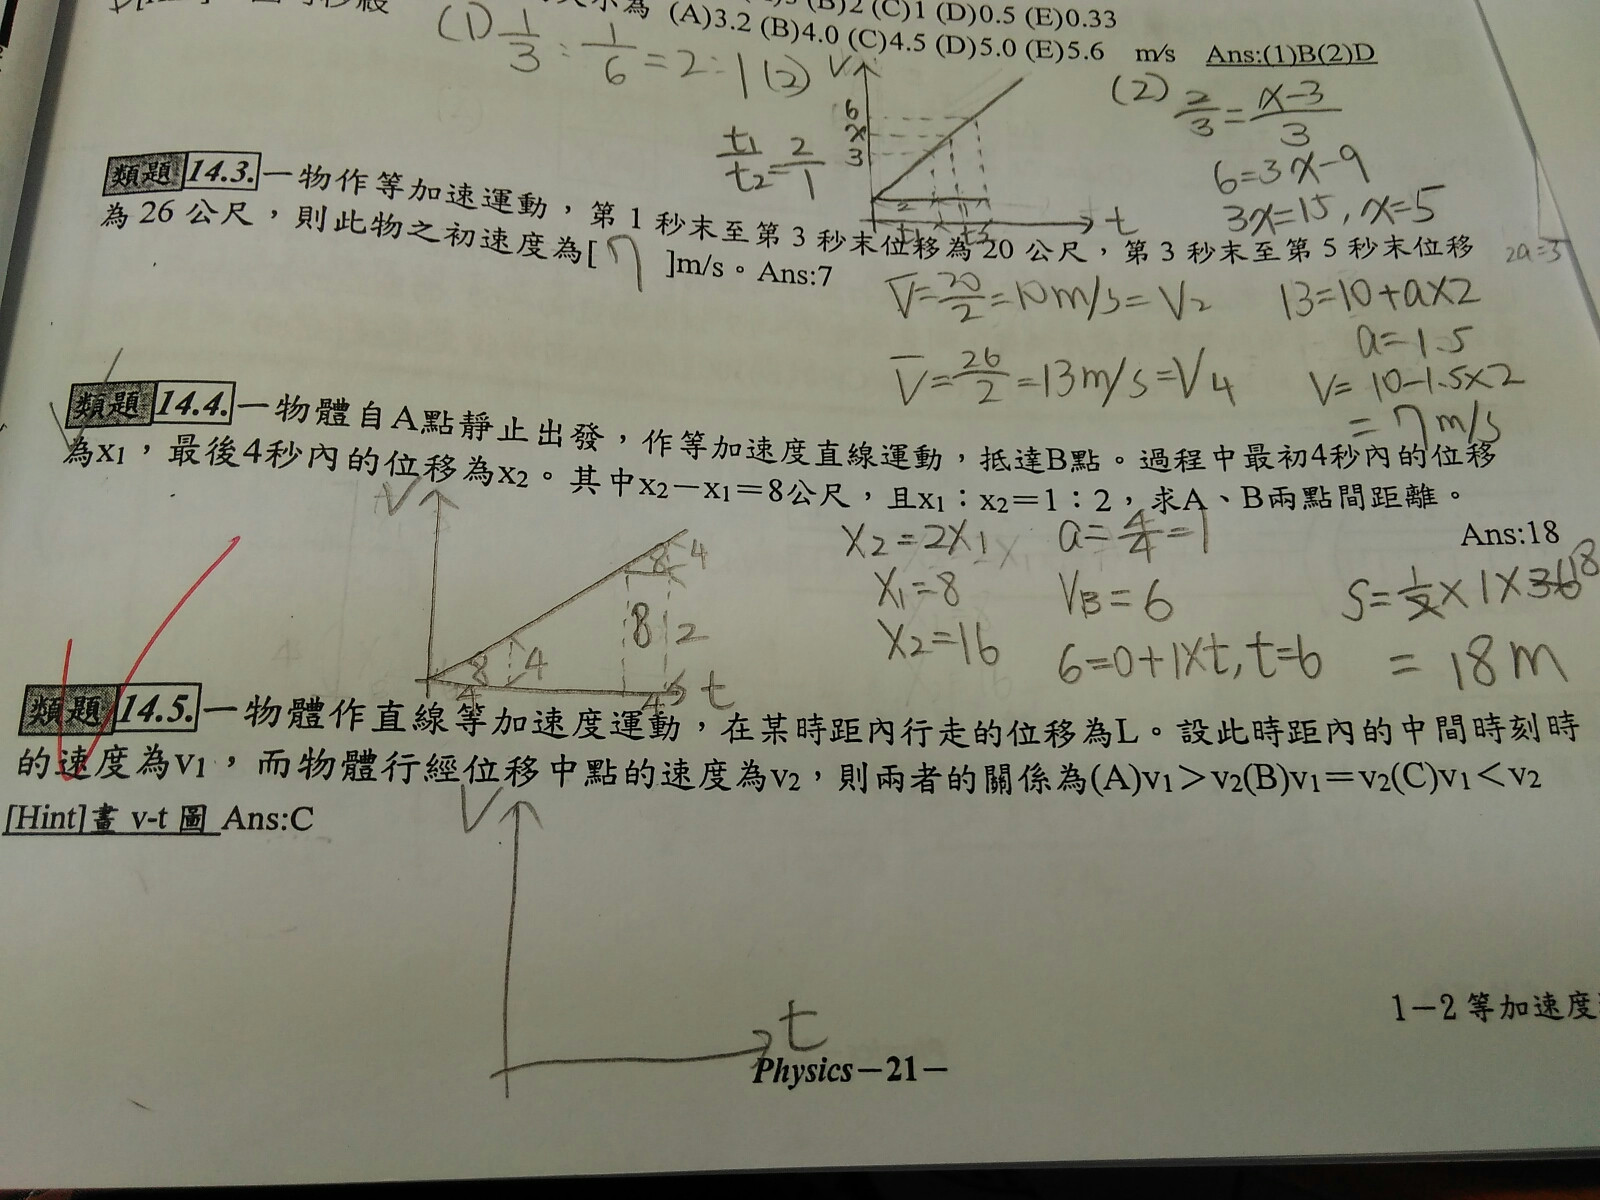 (B)2 (C)1 (D)0.5 (E)0.33
(A)3.2 (B)4.0 (C)4.5 (D)5.0 (E)5.6 m/s Ans:(1)B(2)D
(1) 1/3 : 1/6 = 2:1 (2)
V
6
x
3
t
t1/t2 = 2/1
(2) 2/3 = x-3/3
6=3x-9
3x=15, x=5
類題 14.3. 一物作等加速運動，第 1 秒末至第 3 秒末位移為 20 公尺，第 3 秒末至第 5 秒末位移
為 26 公尺，則此物之初速度為[ 7 ]m/s。Ans:7
V=20/2=10m/s=V2
13=10+a×2
a=1.5
V=26/2=13m/s=V4
V=10-1.5×2
=7m/s
類題 14.4. 一物體自A點靜止出發，作等加速度直線運動，抵達B點。過程中最初4秒內的位移
為x1，最後4秒內的位移為x2。其中x2－x1＝8公尺，且x1：x2＝1：2，求A、B兩點間距離。
Ans:18
V
8 4
8 2
8 4
4 4 t
X2=2X1
X1=8
X2=16
a=4/4=1
VB=6
6=0+1×t, t=6
S=1/2×1×36 18
=18m
類題 14.5. 一物體作直線等加速度運動，在某時距內行走的位移為L。設此時距內的中間時刻時
的速度為v1，而物體行經位移中點的速度為v2，則兩者的關係為(A)v1＞v2(B)v1＝v2(C)v1＜v2
[Hint]畫 v-t 圖 Ans:C
V
t
1－2 等加速度
Physics－21－